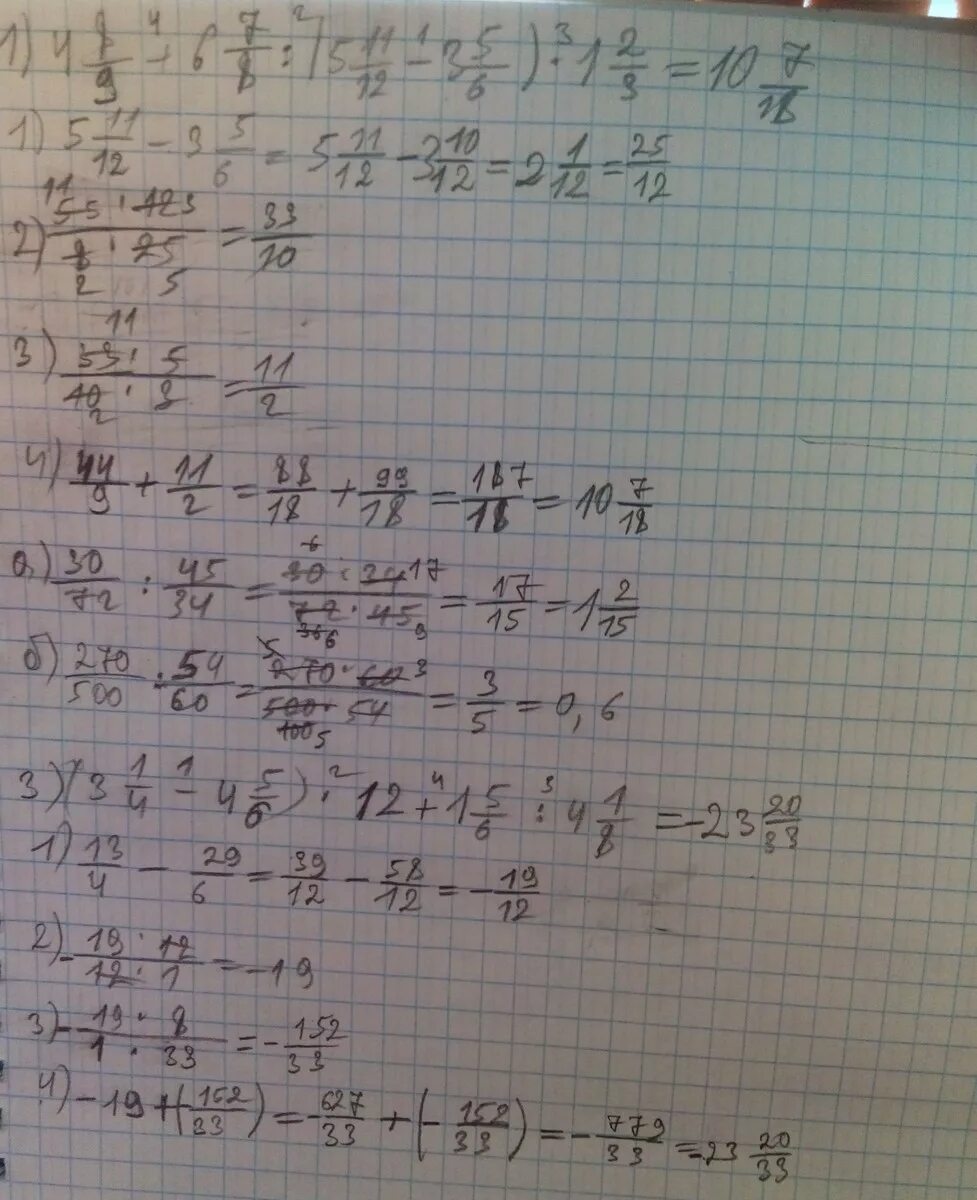 1) 4 8/9 + 6 7/8 : (5 11/12 - 3 5/6) · 1 2/3 = 10 7/18
1) 5 11/12 - 3 5/6 = 5 11/12 - 3 10/12 = 2 1/12 = 25/12
2) 55 · 12/8 · 25 = 33/10
3) 33 · 5/10 · 3 = 11/2
4) 44/9 + 11/2 = 88/18 + 99/18 = 187/18 = 10 7/18
а) 30/72 : 45/34 = 30 · 34/72 · 45 = 17/15 = 1 2/15
б) 270/500 : 54/60 = 270 · 60/500 · 54 = 3/5 = 0,6
3) (3 1/4 - 4 5/6) · 12 + 1 5/6 : 4 1/8 = -23 20/33
1) 13/4 - 29/6 = 39/12 - 58/12 = -19/12
2) -19 · 12/12 · 1 = -19
3) -19 · 8/1 · 33 = -152/33
4) -19 + (-152/33) = -627/33 + (-152/33) = -779/33 = -23 20/33